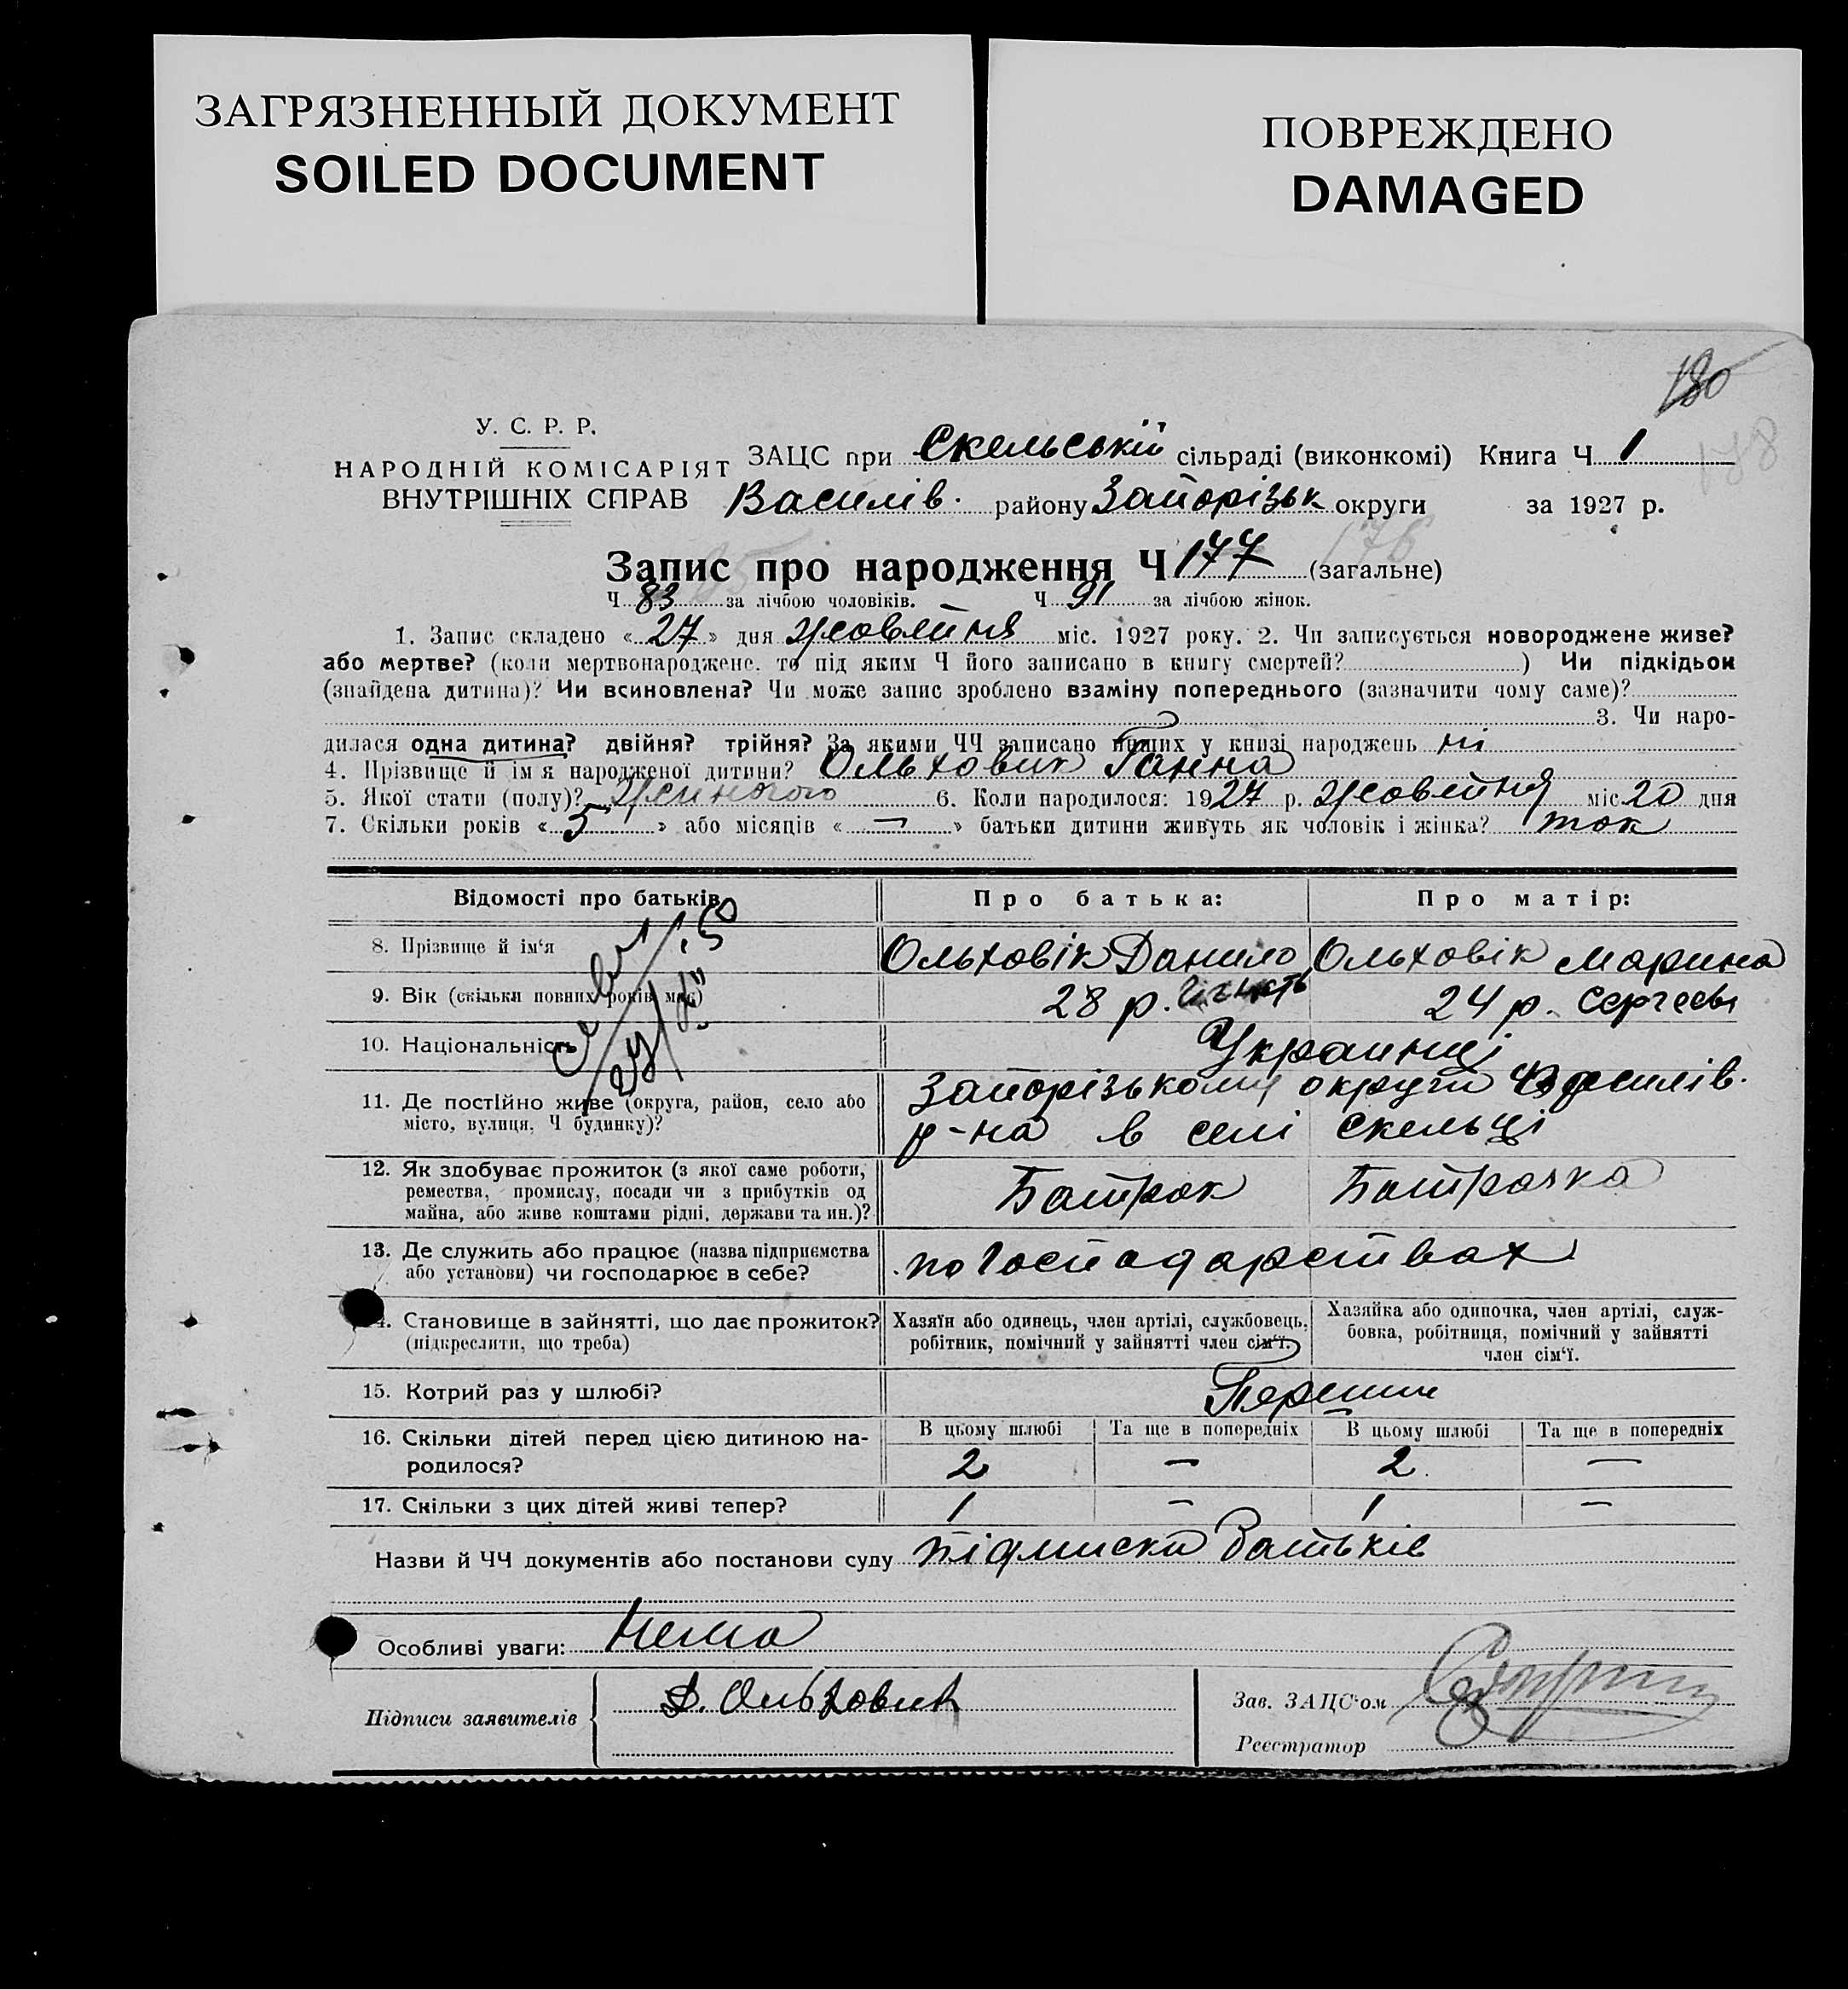 ЗАГРЯЗНЕННЫЙ ДОКУМЕНТ
SOILED DOCUMENT
ПОВРЕЖДЕНО
DAMAGED
180
178
У. С. Р. Р.
НАРОДНІЙ КОМІСАРІЯТ
ВНУТРІШНІХ СПРАВ
ЗАЦС при Скельській сільраді (виконкомі) Книга Ч 1
Василів. району Запорізьк округи за 1927 р.
176
Запис про народження Ч 177 (загальне)
Ч 83 за лічбою чоловіків. Ч 91 за лічбою жінок.
1. Запис складено « 27 » дня жовтня міс. 1927 року. 2. Чи записується новороджене живе?
або мертве? (коли мертвонароджене. то під яким Ч його записано в книгу смертей? ) Чи підкідьок
(знайдена дитина)? Чи всиновлена? Чи може запис зроблено взаміну попереднього (зазначити чому саме)?
3. Чи наро-
дилася одна дитина? двійня? трійня? За якими ЧЧ записано инших у книзі народжень ні
4. Прізвище й ім'я народженої дитини? Ольховик Ганна
5. Якої стати (полу)? Жиночого 6. Коли народилося: 1927 р. жовтня міс 20 дня
7. Скільки років « 5 » або місяців « — » батьки дитини живуть як чоловік і жінка? так
Відомості про батьків
Про батька:
Про матір:
8. Прізвище й ім'я Ольховік Данило Ольховік Марина
9. Вік (скільки повних років має) 28 р. 24 р. Сергеевн
10. Національність Украинці
11. Де постійно живе (округа, район, село або Запорізькому округи Василів.
місто, вулиця, Ч будинку)? р-на в селі Скельці
12. Як здобуває прожиток (з якої саме роботи,
ремества, промислу, посади чи з прибутків од Батрак Батрачка
майна, або живе коштами рідні, держави та ин.)?
13. Де служить або працює (назва підприємства по господарствах
або установи) чи господарює в себе?
4. Становище в зайнятті, що дає прожиток?
(підкреслити, що треба)
Хазяїн або одинець, член артілі, службовець,
робітник, помічний у зайнятті член сім'ї.
Хазяйка або одиночка, член артілі, служ-
бовка, робітниця, помічний у зайнятті
член сім'ї.
15. Котрий раз у шлюбі? Перший
16. Скільки дітей перед цією дитиною на-
родилося?
В цьому шлюбі Та ще в попередніх В цьому шлюбі Та ще в попередніх
2 — 2 —
17. Скільки з цих дітей живі тепер? 1 — 1 —
Назви й ЧЧ документів або постанови суду підписка батьків
Особливі уваги: Нема
Підписи заявителів Д. Ольховик
Зав. ЗАЦС'ом
Реєстратор